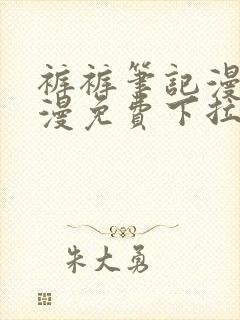 裤裤筆記漫
漫免費下拉
朱大勇